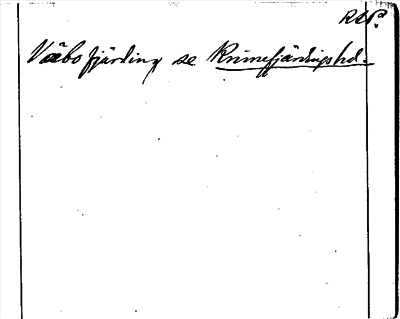 Väbo fjärding se Rumefjärdingshd.